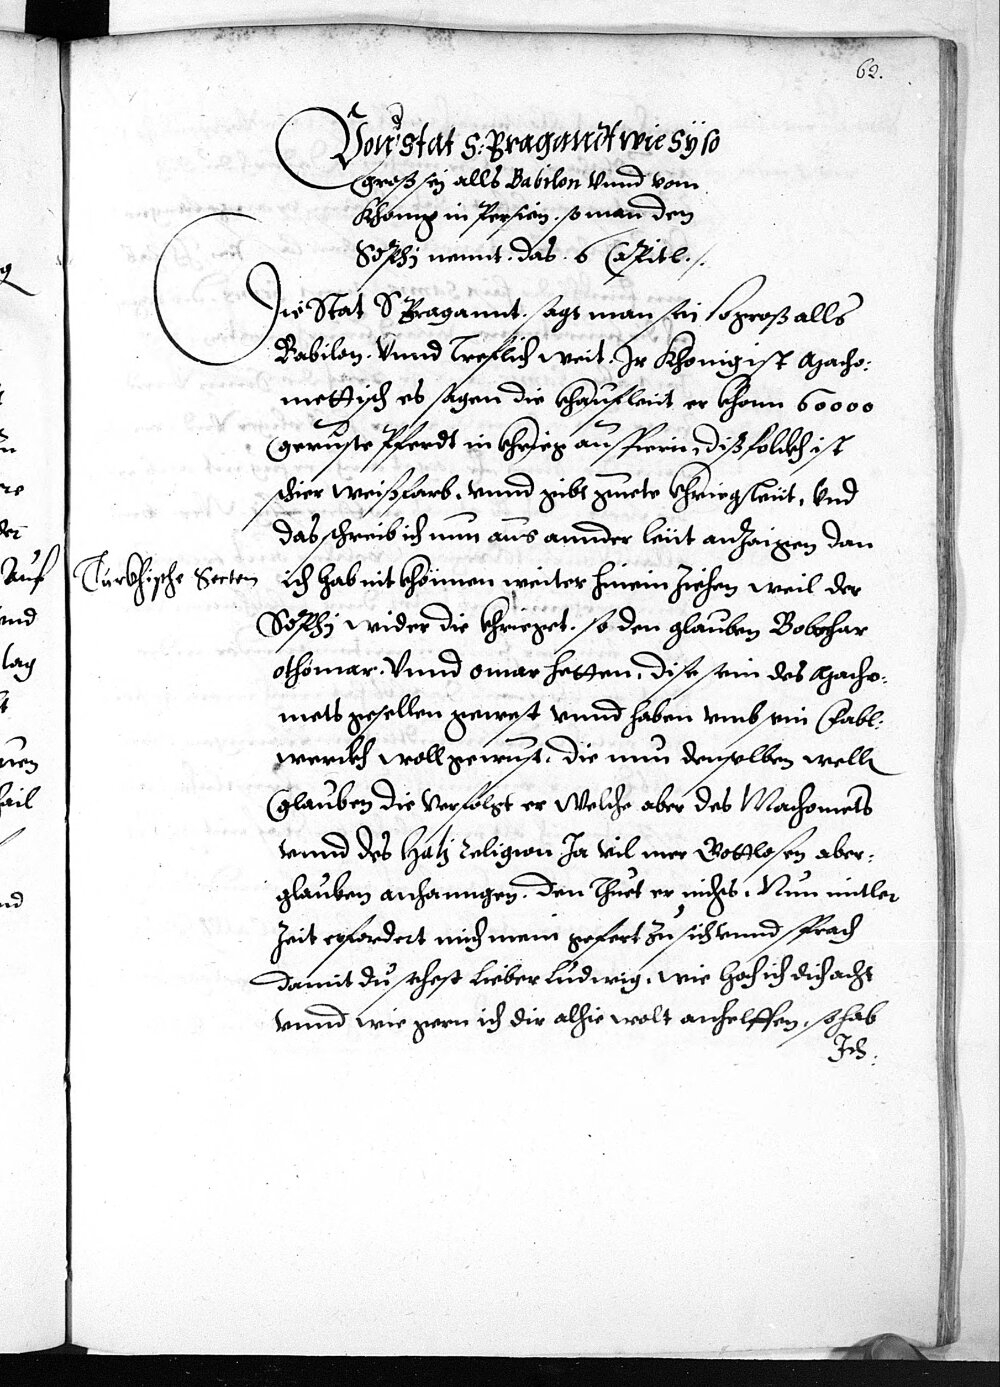 62.
Von d' stat S: Bragandt wie sy so
groß sej alls Babilon vnnd vom
Khonig in Persien. so man den
Sophj nennt. das. 6 Capitl.
Die Stat S Bragannt. sagt man sei so groß alls
Babilon. Vnnd trefflich weit. Jr Khonig ist Macho:
mettisch es sagen die khaufleüt er khonn 60000
gerüste Pferdt in khrieg auffieren, diß folckh ist
schier weißfarb. vnnd gibt guete khriegsleüt, Vnd
das schreib ich nun aus annder leüt anzaigen dan
Türkhische Secten
ich hab nit khönnen weiter hinein ziehen weil der
Sophj wider die khrieget. so den glauben Bobchar
othomar. Vnnd omar hetten. dise sein des Macho:
mets gesellen gewest vnnd haben vmb sein Fabl:
werckh woll gewust. die nun denselben welln
glauben die verfolgt er Welche aber des Machomets
vnnd des Halj religion Ja vil mer Gottlosen aber:
glauben anhanngen. den thuet er nichts. Nun mitler
Zeit erfordert mich mein gefert zu sich vnnd sprach
damit du sehest lieber Ludwig, wie hoch ich dich acht
vnnd wie gern ich dir alhie wolt anhelffen. so hab
Jch: